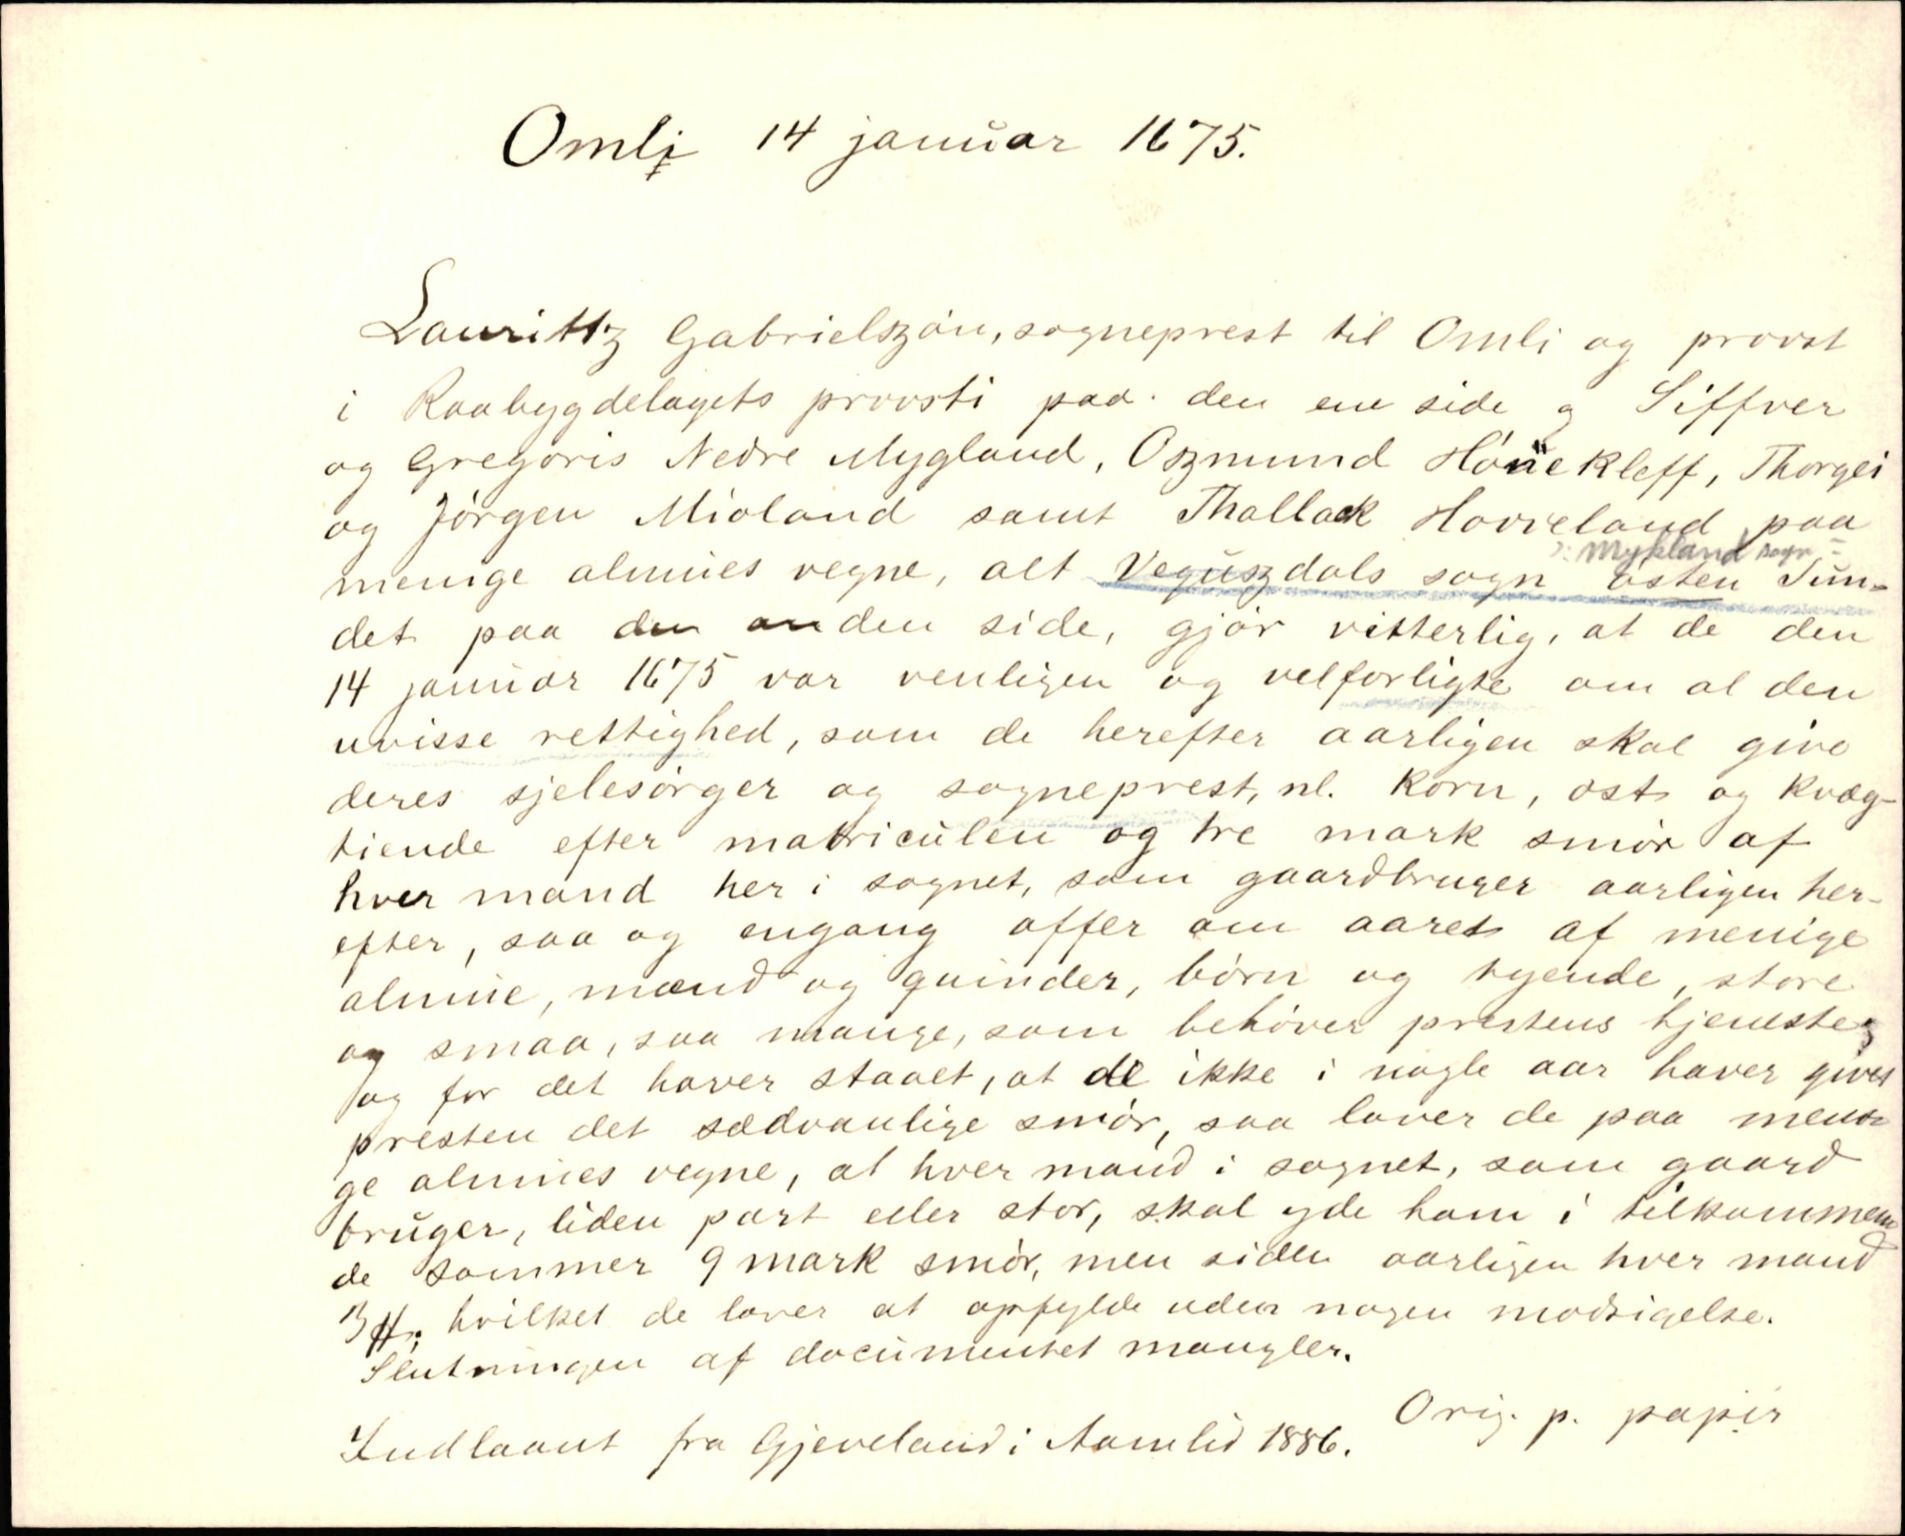 Omli 14 januar 1675.
Laurittz Gabrielszøn, sogneprest til Omli og provst
i Raabygdelagets provsti paa den ene side og Siffver
og Gregoris Nedre Mygland, Oszmund Hønekleff, Thorgei
og Jörgen Mioland samt Thallack Hovreland paa
ɔ: Mykland sogn =
menige almues vegne, alt Veguszdals sogn østen Sun-
det paa den anden side, gjør vitterlig, at de den
14 januar 1675 var venligen og velforligte om al den
uvisse rettighed, som de herefter aarligen skal give
deres sjelesørger og sogneprest, nl. korn, ost og kvæg-
tiende efter matriculen og tre mark smør af
hver mand her i sognet, som gaardbruger aarligen her-
efter, saa og engang offer om aaret af menige
almue, mænd og quinder, børn og tyende, store
og smaa, saa mange, som behøver prestens tjeneste;
og for det haver staaet, at de ikke i nogle aar haver givet
presten det sædvanlige smør, saa lover de paa meni-
ge almues vegne, at hver mand i sognet, som gaard
bruger, liden part eller stor, skal yde ham i tilkommen
de sommer 9 mark smør, men siden aarligen hver mand
3 ℔; hvilket de lover at opfylde uden nogen modsigelse.
Slutningen af documentet mangler.
Orig. p. papir
Indlaant fra Gjeveland i Aamlid 1886.